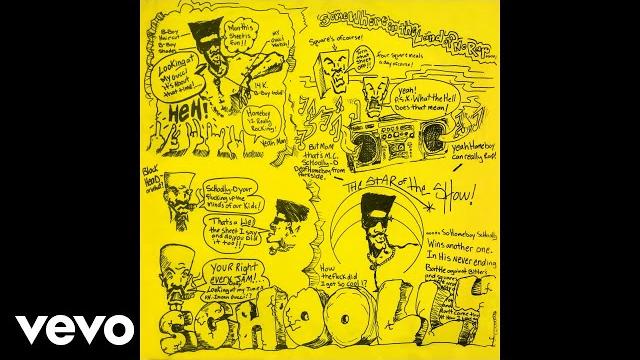 B-Boy
Haircut
B-Boy
Shades
Man this
Sheet is
Fun!!
my
Gucci
Watch!
Looking at
My Gucci
It's About
that time!
14 K
B-Boy Gold!
HEH!
Homeboy
Is Really
Rocking!
Yeah Man!
Somewhere in the Land of No Rap
Square's of course!
Turn
that
Sheet
Off!!
four square meals
a day of course!
Yeah!
P.S.K. What the Hell
Does that mean!
yeah Homeboy
can really Rap!
But Man
that's M.C.
Schoolly-D
Def Homeboy from
Parkside
Black
Head
Schoolly-D your
Fucking up the
minds of our Kids!
That's a Lie!
the Sheet I say
and do, you did
it too!!
THE STAR of the SHOW!
So Homeboy Schoolly
Wins another one.
In His never ending
Battle against Biter's
and Square
YOUR Right
every JAM!...
Looking at my
Gucci!!
How
the Fuck did
I get so Cool!?
SCHOOLLY
vevo